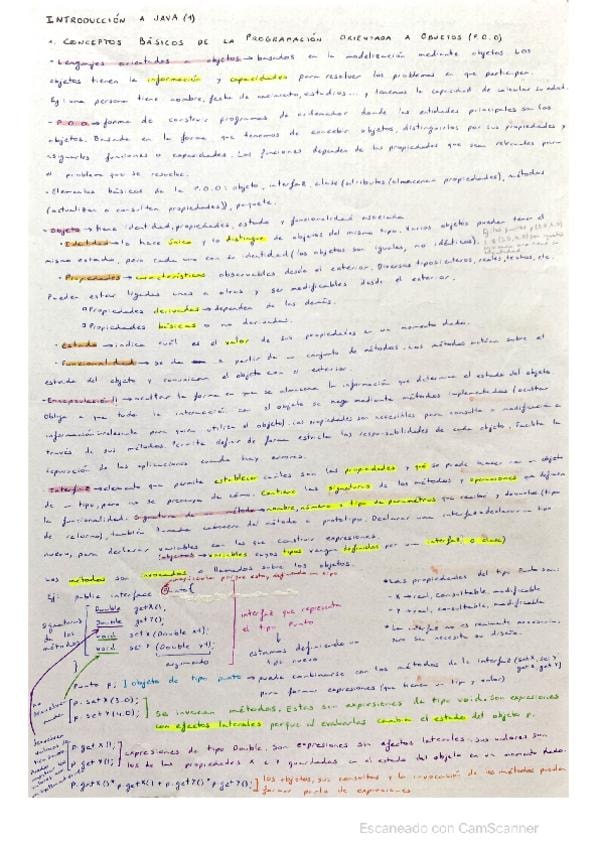 INTRODUCCIÓN A JAVA (1)
1. CONCEPTOS BÁSICOS DE LA PROGRAMACIÓN ORIENTADA A OBJETOS (P.O.O)
- Lenguajes orientados a objetos → basados en la modelización mediante objetos. Los
objetos tienen la información y capacidades para resolver los problemas en que participan.
Ej: una persona tiene nombre, fecha de nacimiento, estudios... y tenemos la capacidad de calcular su edad.
- P.O.O → forma de construir programas de ordenador donde las entidades principales son los
objetos. Basada en la forma que tenemos de concebir objetos, distinguirlos por sus propiedades y
asignarles funciones o capacidades. Las funciones dependen de las propiedades que sean relevantes para
el problema que se resuelve.
- Elementos básicos de la P.O.O: objeto, interfaz, clase (atributos (almacenan propiedades), métodos
(actualizan o consultan propiedades)), paquete.
- Objeto → tiene identidad, propiedades, estado y funcionalidad asociada
- Identidad → lo hace único y lo distingue de objetos del mismo tipo. Varios objetos pueden tener el
mismo estado, pero cada uno con su identidad (los objetos son iguales, no idénticos).
- Propiedades → características observables desde el exterior. Diversos tipos: enteros, reales, textos, etc.
Pueden estar ligadas unas a otras y ser modificables desde el exterior.
Propiedades derivadas → dependen de las demás.
Propiedades básicas o no derivadas.
- Estado → indica cuál es el valor de sus propiedades en un momento dado.
- Funcionalidad → se da a partir de un conjunto de métodos. Los métodos actúan sobre el
estado del objeto y comunican el objeto con el exterior.
- Encapsulación → ocultar la forma en que se almacena la información que determina el estado del objeto
Obliga a que toda la interacción con el objeto se haga mediante métodos implementados (ocultar
información irrelevante para quien utiliza el objeto). Las propiedades son accesibles para consulta o modificación a
través de sus métodos. Permite definir de forma estricta las responsabilidades de cada objeto. Facilita la
depuración de las aplicaciones cuando hay errores.
- Interfaz → elemento que permite establecer cuáles son las propiedades y qué se puede hacer con un objeto
de un tipo, pero no se preocupa de cómo. Contiene las signaturas de los métodos y operaciones que definen
la funcionalidad. Signatura de método → nombre, número y tipo de parámetros que recibe y devuelve (tipo
de retorno), también llamada cabecera del método o prototipo. Declarar una interfaz → declarar un tipo
nuevo, para declarar variables con las que construir expresiones.
objetos → variables cuyos tipos vengan definidos por una interfaz o clase)
Los métodos son invocados o llamados sobre los objetos.
mayúscula porque estoy definiendo un tipo
Ej: public interface Punto {
Double getX();
Double getY();
void setX(Double x1);
void setY(Double y1);
}
argumento
signaturas
de los
métodos
interfaz que representa
el tipo Punto
estamos definiendo un
tipo nuevo
• Las propiedades del tipo Punto son:
- X → real, consultable, modificable
- Y → real, consultable, modificable
• La interfaz no es realmente necesaria
pero se necesita su diseño.
Punto p; ] objeto de tipo punto → puede combinarse con los métodos de la interfaz (setX, setY, getX, getY)
para formar expresiones (que tienen un tipo y valor)
p.setX(3.0);
p.setY(4.0);
Se invocan métodos. Estas son expresiones de tipo void. Son expresiones
con efectos laterales porque al evaluarlas cambia el estado del objeto p.
p.getX();
p.getY();
expresiones de tipo Double. Son expresiones sin efectos laterales. Sus valores son
los de las propiedades X e Y guardadas en el estado del objeto en un momento dado.
p.getX()*p.getX()+p.getY()*p.getY(); ] los objetos, sus consultas y la invocación de los métodos pueden
formar parte de expresiones
Escaneado con CamScanner